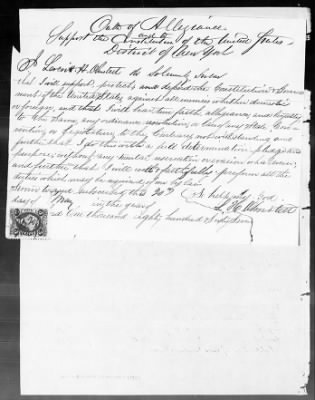 Oath of Allegiance
and to
Support the Constitution of the United States
District of New York
I do Solemnly Swear
that I will support, protect, and defend the Constitution & Govern
ment of the United States, against all enemies whether domestic
or foreign, and that I will bear true faith, allegiance, and loyalty
to the Same, any ordinance, resolution, or law of any State Con
vention or Legislature to the Contrary notwithstanding, and
further that I do this with a full determination pledge and
purpose, without any mental reservation or evasion whatsoever,
and further that I will well & faithfully perform all the
duties which may be required of me by law.
So help me God
Sworn to and Subscribed this 20th
day of May in the year
one thousand eighty hundred Sixty